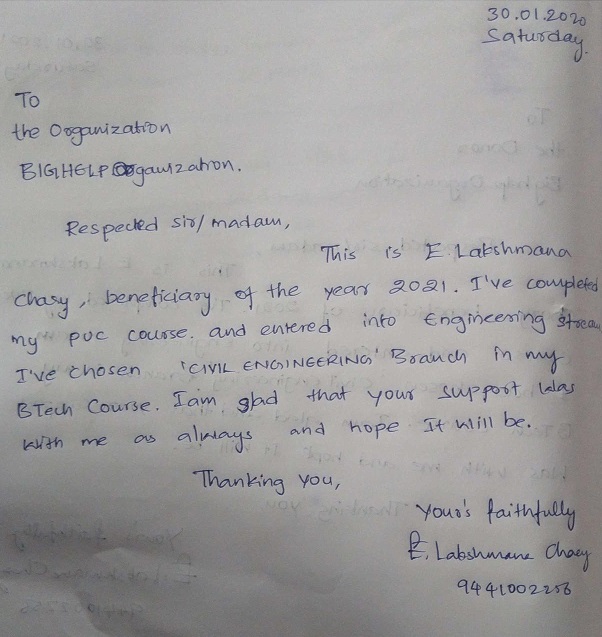 30.01.2020
Saturday.
To
the Organization
BIGHELP Organization.
Respected sir/madam,
This is E. Lakshmana
Chary, beneficiary of the year 2021. I've completed
my PUC course. and entered into Engineering Stream
I've chosen 'CIVIL ENGINEERING' Branch in my
BTech Course. I am glad that your support was
with me as always and hope It will be.
Thanking you,
Your's faithfully
E. Labshmana Chary
9441002256